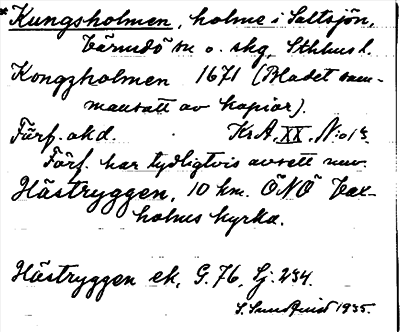 *Kungsholmen, holme i Saltsjön,
Värmdö sn o. skg, Sthlms l.
Kongzholmen 1671 (Bladet sam-
mansatt av kopior).
Förf. okd. KrA, XX, N:o 1
Förf. har tydligtvis avsett nuv.
Hästryggen, 10 km. ÖNÖ Vax-
holms kyrka.
Hästryggen ek, G.76, Sj. 234.
S. Sundquist 1935.